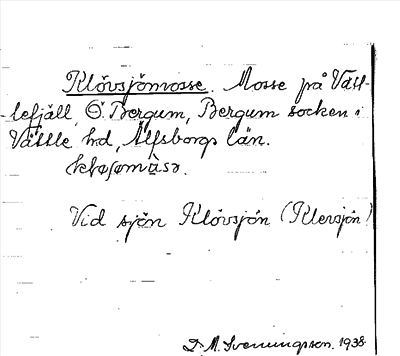 Klövsjömosse. Mosse på Vätt-
lefjäll, Ö. Bergum, Bergum socken i
Vättle hd, Älfsborgs län.
Vid sjön Klövsjön (Klevsjön)
D. M. Svenungsson. 1938